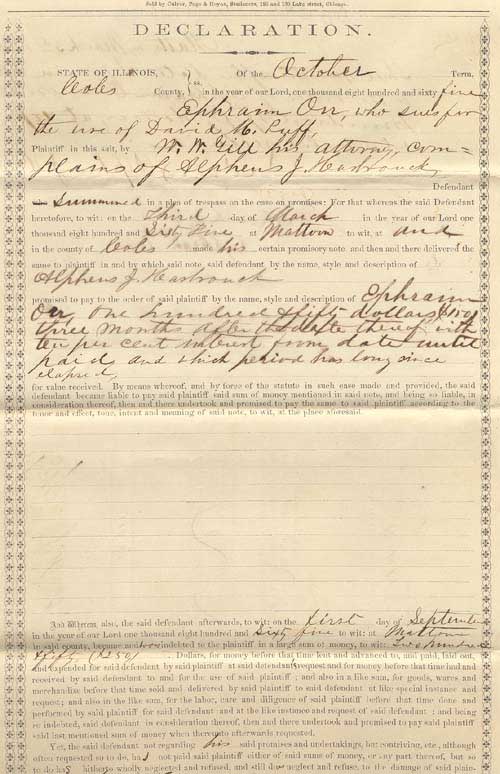 Sold by Culver, Page & Hoyne, Stationers, 128 and 130 Lake street, Chicago.
DECLARATION.
STATE OF ILLINOIS, Of the October Term,
Coles County, in the year of our Lord, one thousand eight hundred and sixty five
Ephraim Orr, who sues for
the use of David H. Puff,
Plaintiff in this suit, by W. W. Gill his attorney, com=
plains of Alphens J. Hasbrouck
Defendant
Summoned in a plea of trespass on the case on promises: For that whereas the said Defendant
heretofore, to wit: on the Third day of March in the year of our Lord one
thousand eight hundred and Sixty Five at Mattoon to wit, at and
in the county of Coles made his certain promissory note and then and there delivered the
same to plaintiff in and by which said note, said defendant by the name, style and description of
Alphens J. Hasbrouck
promised to pay to the order of said plaintiff by the name, style and description of Ephraim
Orr, one hundred & fifty dollars $150
three months after the date thereof with
ten per cent interest from date until
paid and which period has long since
elapsed,
for value received. By means whereof, and by force of the statute in such case made and provided, the said
defendant became liable to pay said plaintiff said sum of money mentioned in said note, and being so liable, in
consideration thereof, then and there undertook and promised to pay the same to said plaintiff according to the
tenor and effect, true, intent and meaning of said note, to wit, at the place aforesaid.
And Whereas, also, the said defendant afterwards, to wit: on the first day of September
in the year of our Lord one thousand eight hundred and sixty five to wit: at Mattoon
in said county, became and was indebted to the plaintiff in a large sum of money, to wit: Two hundred
& fifty ($250) Dollars, for money before that time lent and advanced to, and paid, laid out
and expended for said defendant by said plaintiff at said defendant's request: and for money before that time had and
received by said defendant to and for the use of said plaintiff; and also in a like sum, for goods, wares and
merchandize before that time sold and delivered by said plaintiff to said defendant at like special instance and
request; and also in the like sum, for the labor, care and diligence of said plaintiff before that time done and
performed by said plaintiff for said defendant and at the like instance and request of said defendant; and being
so indebted, said defendant in consideration thereof, then and there undertook and promised to pay said plaintiff
said last mentioned sum of money when thereunto afterwards requested.
Yet, the said defendant not regarding his said promises and undertakings, but contriving, etc., although
often requested so to do, has not paid said plaintiff either of said sums of money, or any part thereof, but so
to do has hitherto wholly neglected and refused, and still does neglect and refuse, to the damage of said plain-